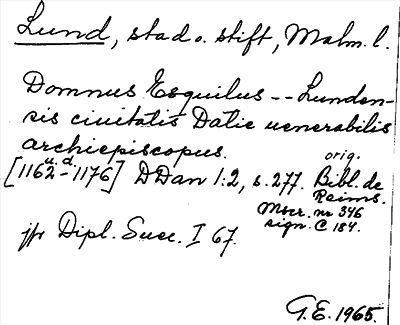 Lund, stad o. stift, Malm. l.
Domnus Esquilus -- Lunden-
sis ciuitatis Datie uenerabilis
archiepiscopus.
[1162 u. d. -1176] DDan 1:2, s. 277. orig. Bibl. de
Reims.
Mscr. nr 346
sign. C 184.
jfr Dipl. Suec. I 67.
G.E. 1965.